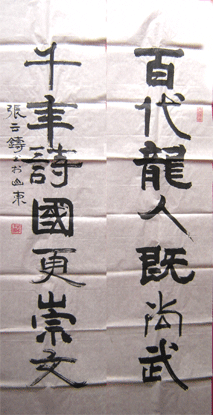 百代龍人既尚武
千年詩國更崇文
張云鑄書於山東